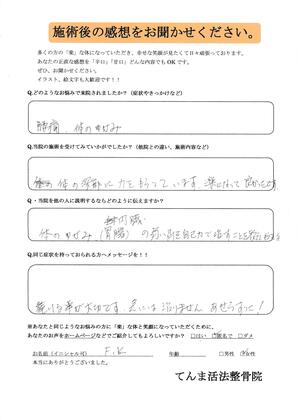 施術後の感想をお聞かせください。
多くの方の「楽」な体になっていただき、幸せな笑顔が見たくて日々頑張っております。
あなたの正直な感想を「辛口」「甘口」どんな内容でもOKです。
ぜひ、お聞かせください。
イラスト、絵文字も大歓迎です！！
Q.どのようなお悩みで来院されましたか？（症状やきっかけなど）
腰痛、体のゆがみ
Q.当院の施術を受けてみていかがでしたか？（他院との違い、施術内容など）
体の
に力を
っています。楽になって
Q・当院を他の人に説明するならどのように伝えますか？
内臓
体のゆがみ、(胃腸)の
を自己力で治すことを
Q.同じ症状を持っておられる方へメッセージを！！
続ける事が大切です。急には治りません あせらずっと！
※あなたと同じようなお悩みの方に「楽」な体と笑顔になっていただくために、
あなたのお声をホームページなどでご紹介してもよろしいですか？ □はい □匿名で □ダメ
お名前（イニシャル可） F.K 年齢 □男性 女性
本当にありがとうございました。
てんま活法整骨院